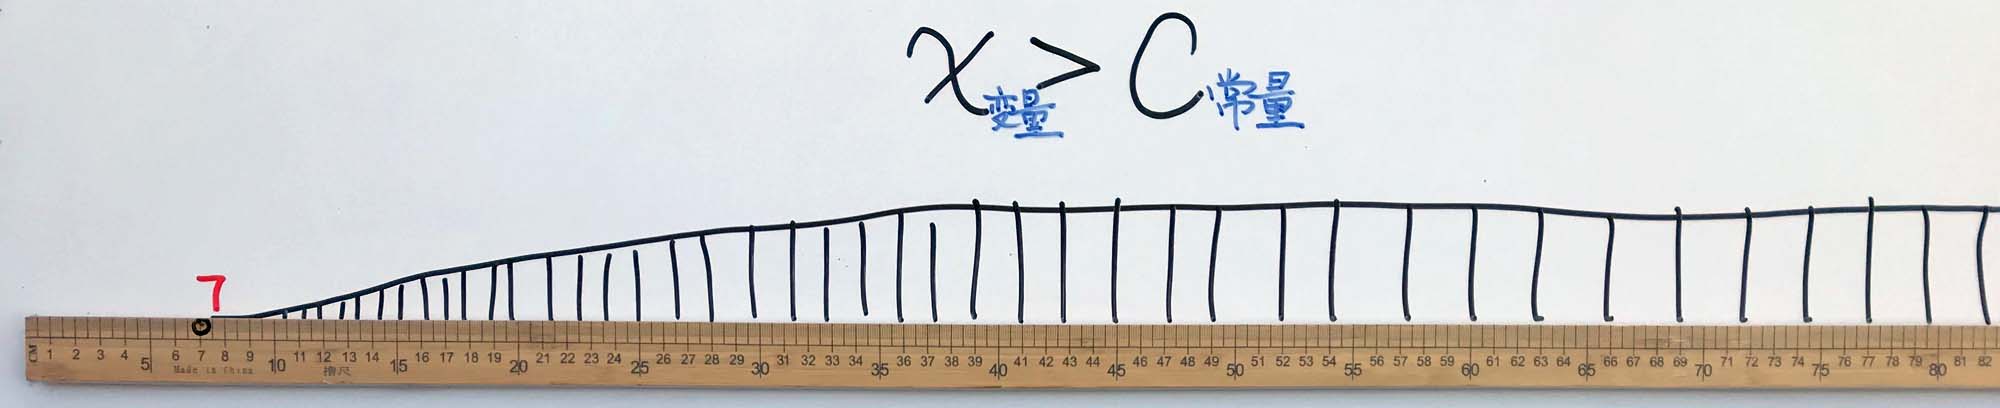 x变量 > C常量
7
CM 1 2 3 4 5 6 7 8 9 10 11 12 13 14 15 16 17 18 19 20 21 22 23 24 25 26 27 28 29 30 31 32 33 34 35 36 37 38 39 40 41 42 43 44 45 46 47 48 49 50 51 52 53 54 55 56 57 58 59 60 61 62 63 64 65 66 67 68 69 70 71 72 73 74 75 76 77 78 79 80 81 82
Made in China